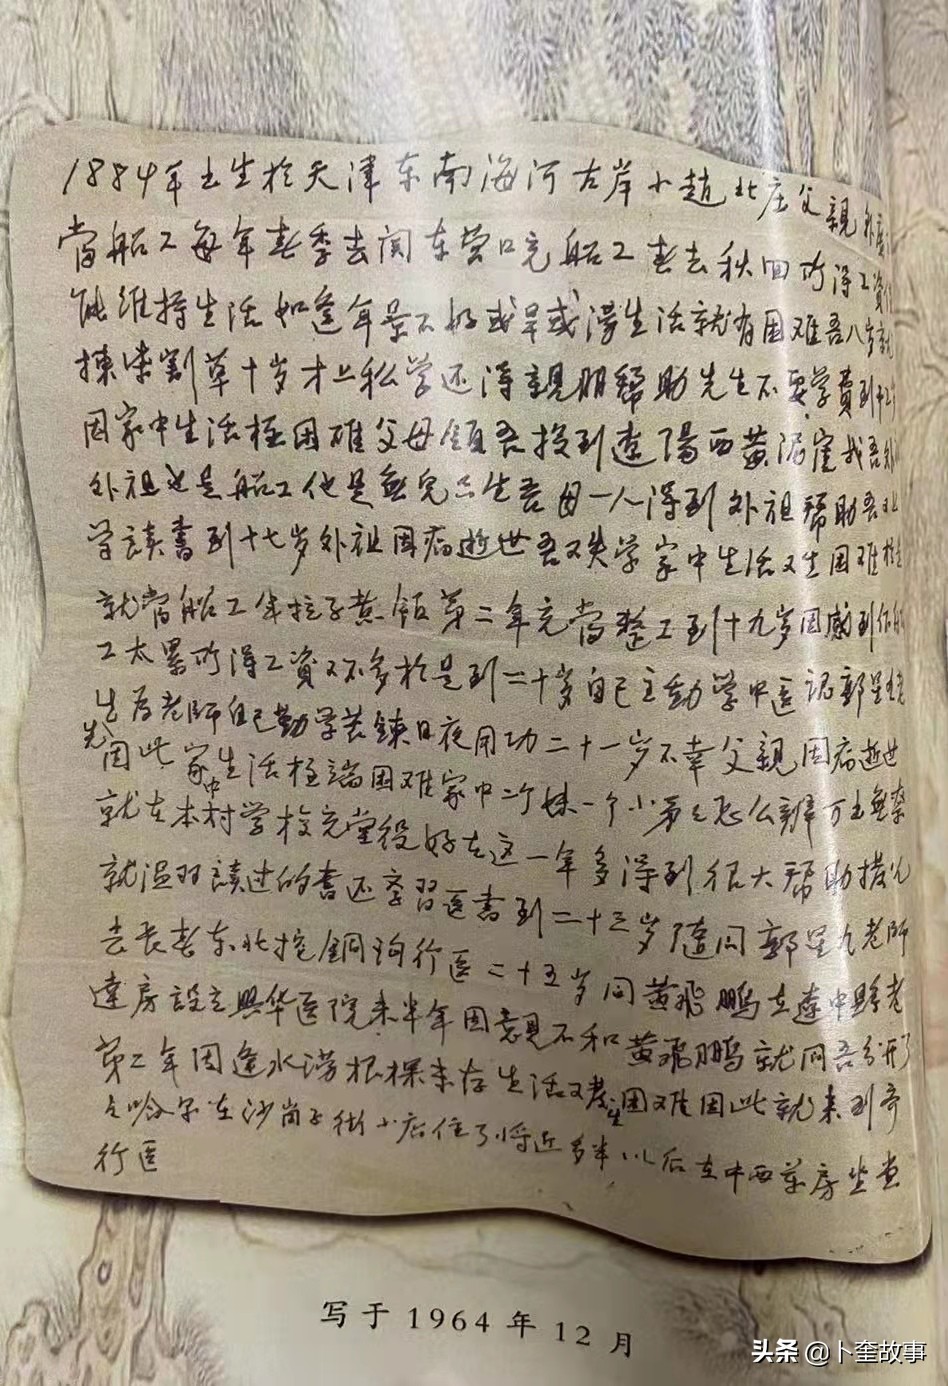 1884年出生於天津东南海河右岸小赵北庄父親
當船工每年春季去関东营口充船工春去秋回所得工資
能維持生活如逢年景不好或旱或澇生活就有困难吾八岁就
揀柴割草十岁才上私学还得親朋幫助先生不要学費到
因家中生活極困难父母領吾投到遼陽西黄泥崖找吾外
外祖也是船工他是無兒只生吾母一人得到外祖幫助吾
学讀書到十七岁外祖因病逝世吾又失学家中生活又生困难
就當船工年拉子煮飯第二年充當整工到十九岁因感到
工太累所得工資又不多於是到二十岁自己主動学中医认郭星
先生为老師自己勤学苦鍊日夜用功二十一岁不幸父親因病逝世
因此家中生活極端困难家中二个妹一个小弟怎么辦万出無奈
就在本村学校充堂役好在这一年多得到很大幫助
就温习读过的書还学習医書到二十三岁随同郭星九老師
去长春东北挖銅沟行医二十五岁同黄飛鵬在遼中縣老
達房設立興华医院未半年因意見不和黄飛鵬就同吾分开了
第二年因逢水澇根棵未存生活又發生困难因此就来到齐
齐哈尔在沙崗子街小店住了将近多半以后在中西药房坐堂
行医
写于1964年12月
头条 @卜奎故事